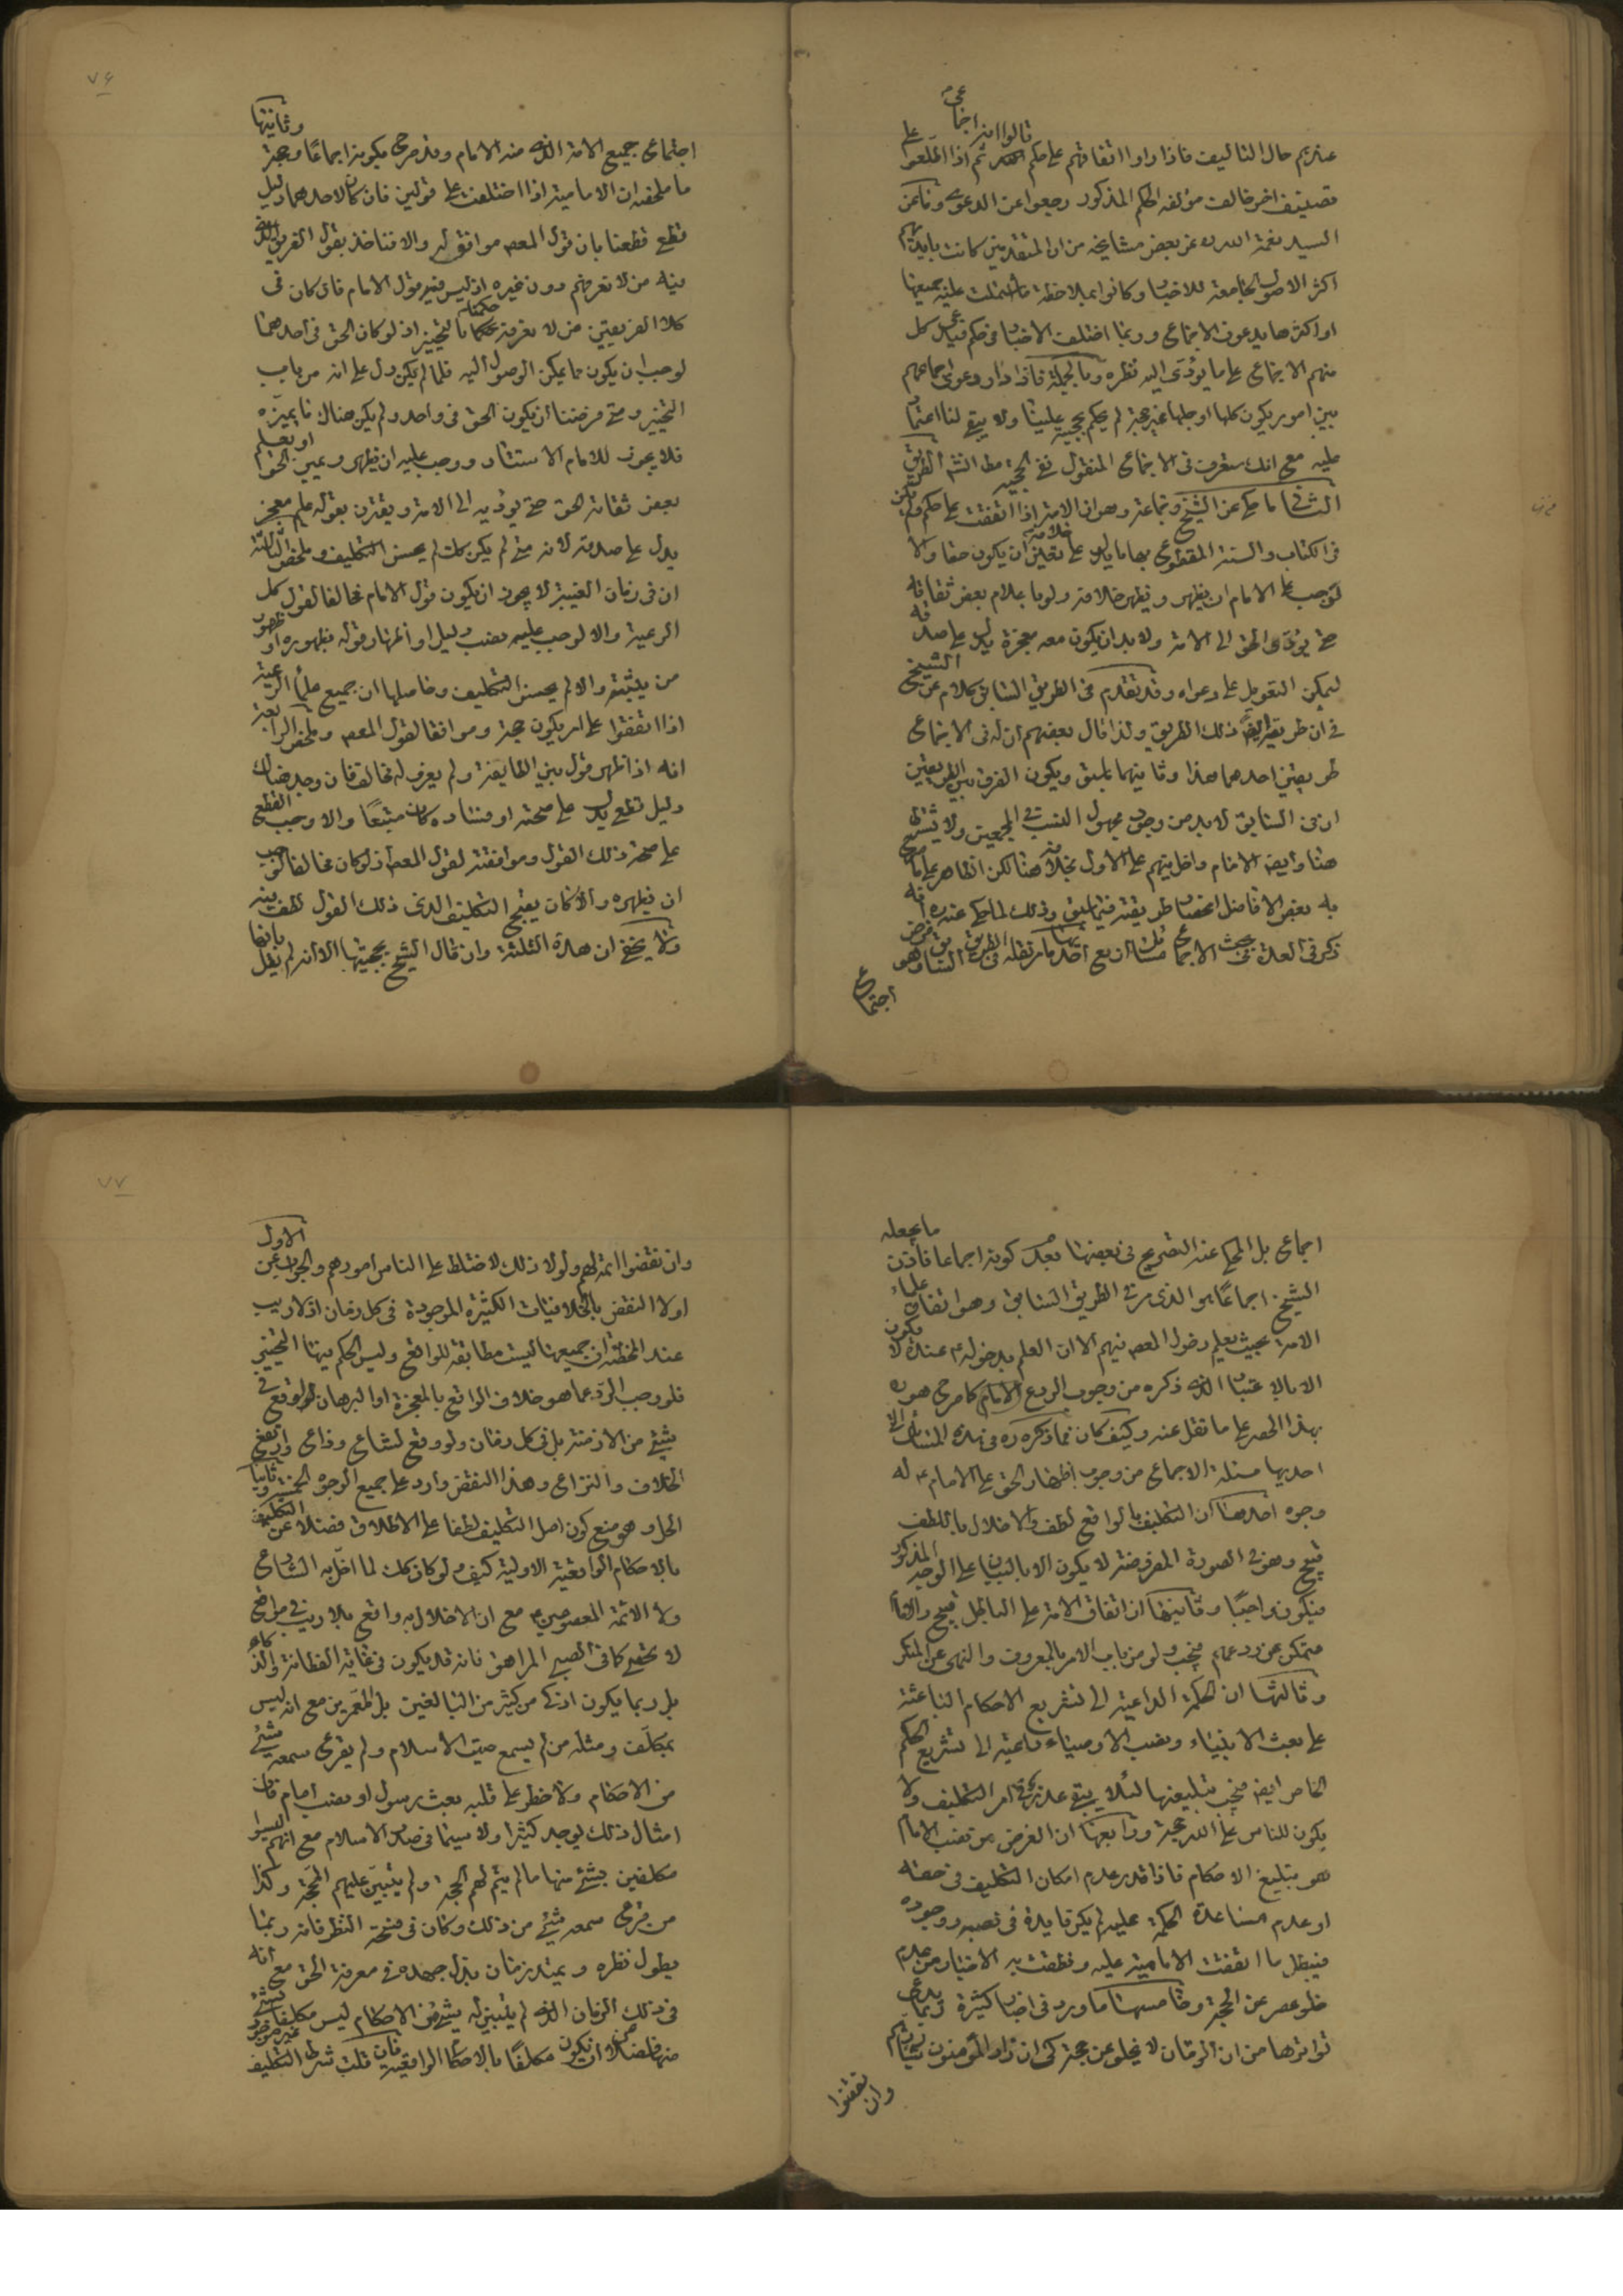 عندهم حال التاليف فاذا راوا اتفاقهم على حكم قالوا انه اجماعى ثم اذا اطلعوا على
تصنيف اخر خالف مؤلفه الحكم المذكور رجعوا عن الدعوى وثامن
السيد نعمة الله عن بعض مشايخه من ان المتقدمين كانت بايديهم
اكثر الاصول الجامعة للاخبار وكانوا بملاحظة ما اشتملت عليه جميعها
او اكثرها يدعون الاجماع وربما اختلف الاخبار فى حكم فيدعى كل
منهم الاجماع على ما يؤدى اليه نظره وبالجملة فاذا دار دعوى اجماعهم
بين امور يكون كلها او جلها غير حجة لم يحكم بحجيته علينا ولا يبقى لنا اعتماد
عليه مع انك ستعرف فى الاجماع المنقول نفى الحجية مطا الشه الطريق
الثانى ما حكى عن الشيخ وجماعة وهو ان الامة اذا اتفقت على حكم ولم يكن
فى الكتاب والسنة المقطوع بها ما يدل على خلافه تعين ان يكون حقا والا
لوجب على الامام ان يظهر ويظهر خلافه ولو باعلام بعض ثقاته
حتى يؤدى الحق الى الامة ولا بد ان يكون معه معجزة يدل على صدقه
ليمكن التعويل على دعواه وقد تقدم فى الطريق السابق كلام عن الشيخ
فى ان طريقه ايضا ذلك الطريق ولذا قال بعضهم ان له فى الاجماع
طريقين احدهما هذا وثانيهما ما سبق ويكون الفرق بين الطريقين
ان فى السابق لا بد من وجود مجهول النسب فى المجمعين ولا يشترط
هنا وايضا الامام داخل بينهم على الاول بخلافه هنا لكن الظاهر على ما صرح
به بعض الافاضل انحصار طريقته فيما سبق وذلك لما حكى عنه ره انه
ذكر فى العدة فى بحث الاجماع مسائل اربع احديها ما مر نقله فى الطريق السابق وهو فرض
اجتماع
وثانيتها
اجتماع جميع الامة الذى منه الامام وقد صرح بكونه اجماعا وحجة
ما ملخصه ان الامامية اذا اختلفت على قولين فان كان لاحدهما دليل
قطع قطعنا بان قول المعصوم موافق له والا فناخذ بقول الفريق الذى
فيه من لا نعرفهم دون غيره اذ ليس فيهم قول الامام فان كان فى
كلا الفريقين من لا نعرفه حكمنا بالتخيير اذ لو كان الحق فى احدهما
لوجب ان يكون مما يمكن الوصول اليه فلما لم يكن دل على انه من باب
التخيير ومتى فرضنا ان يكون الحق فى واحد ولم يكن هناك ما يميزه
فلا يجوز للامام الاستتار ووجب عليه ان يظهر ويبين الحق او يعلم
بعض ثقاته الحق حتى يؤديه الى الامة ويقترن بقوله علم معجز
يدل على صدقه لانه متى لم يكن كذلك لم يحسن التكليف وملخص الثالثة
ان فى زمان الغيبة لا يجوز ان يكون قول الامام مخالفا لقول كل
الرعية والا لوجب عليه نصب دليل او اظهار قوله بظهوره او ظهور
من يثبته والا لم يحسن التكليف وحاصلها ان جميع علماء الرعية
اذا اتفقوا على امر يكون حجة وموافقا لقول المعصوم وملخص الرابعة
انه اذا ظهر قول بين الطايفة ولم يعرف له مخالف فان وجد هناك
دليل قطع يدل على صحته او فساده كان متبعا والا وجب القطع
على صحة ذلك القول وموافقته لقول المعصوم اذ لو كان مخالفا لوجب
ان يظهره والا كان يقبح التكليف الذى ذلك القول لطف فيه
ولا يخفى ان هذه الثلثة وان قال الشيخ بحجيتها الا انه لم يقل بانها
اجماع بل المحكى عنه التصريح فى بعضها بعدم كونه اجماعا فاذن ما يجعله
الشيخ اجماعا هو الذى مر فى الطريق السابق وهو اتفاق علماء
الامة بحيث يعلم دخول المعصوم فيهم الا ان العلم بدخوله ع عنده لا يكون
الا بالاعتبار الذى ذكره من وجوب الردع على الامام كما صرح هو ره
بهذا الحصر على ما نقل عنه وكيف كان فما ذكره ره فى هذه المسائل التى
احديها مسئلة الاجماع من وجوب اظهار الحق على الامام ع له
وجوه احدها ان التكليف بالواقع لطف والاخلال باللطف
قبيح وهو فى الصورة المفروضة لا يكون الا بالبيان على الوجه المذكور
فيكون واجبا وثانيها ان اتفاق الامة على الباطل قبيح والامام
متمكن من ردعهم فيجب ولو من باب الامر بالمعروف والنهى عن المنكر
وثالثها ان الحكمة الداعية الى تشريع الاحكام الباعثة
على بعث الانبياء ونصب الاوصياء داعية الى تشريع الحكم
الخاص ايضا فيجب تبليغها لئلا يبقى عذر فى امر التكليف ولا
يكون للناس على الله حجة ورابعها ان الغرض من نصب الامام
هو تبليغ الاحكام فاذا قدر عدم امكان التكليف فى حقه
او عدم مساعدة الحكمة عليه لم يكن فايدة فى نصبه ووجوده
فيبطل ما اتفقت الامامية عليه ونطقت به الاخبار من عدم
خلو عصر عن الحجة وخامسها ما ورد فى اخبار كثيرة ربما يدعى
تواترها من ان الزمان لا يخلو عن حجة كى ان زاد المؤمنون شيئا ردهم
وان نقضوا
وان نقضوا اتمه لهم ولولا ذلك لاختلط على الناس امورهم والجواب عن الاول
اولا النقض بالخلافيات الكثيرة الموجودة فى كل زمان اذ لا ريب
عند المخطئة ان جميعها ليست مطابقة للواقع وليس الحكم فيها التخيير
فلو وجب الرد عما هو خلاف الواقع بالمعجزة او البرهان لوقع فى
شئ من الازمنة بل فى كل زمان ولو وقع لشاع وذاع وارتفع
الخلاف والنزاع وهذا النقض وارد على جميع الوجوه الخمسة وثانيا
الحل وهو منع كون اصل التكليف لطفا على الاطلاق فضلا عن التكليف
بالاحكام الواقعية الاولية كيف ولو كان كذلك لما اخل به الشارع
ولا الائمة المعصومين ع مع ان الاخلال به واقع بلا ريب فى مواضع
لا تحصى كما فى الصبى المراهق فانه قد يكون فى غاية الفطانة والذكاء
بل ربما يكون اذكى من كثير من البالغين بل المعمرين مع انه ليس
بمكلف ومثله من لم يسمع صيت الاسلام ولم يقرع سمعه شئ
من الاحكام ولا خطر على قلبه بعث رسول او نصب امام فان
امثال ذلك يوجد كثيرا ولا سيما فى صدر الاسلام مع انهم ليسوا
مكلفين بشئ منها ما لم يتم لهم الحجة ولم يتبين عليهم المحجة وكذا
من قرع سمعه شئ من ذلك وكان فى فسحة النظر فانه ربما
يطول نظره ويمتد زمان بذل جهده فى معرفة الحق مع انه
فى ذلك الزمان الذى لم يتبين له شئ من الاحكام ليس مكلفا بشئ
منها فضلا عن ان يكون مكلفا بالاحكام الواقعية فان قلت شرط التكليف
٧٦
٧٧